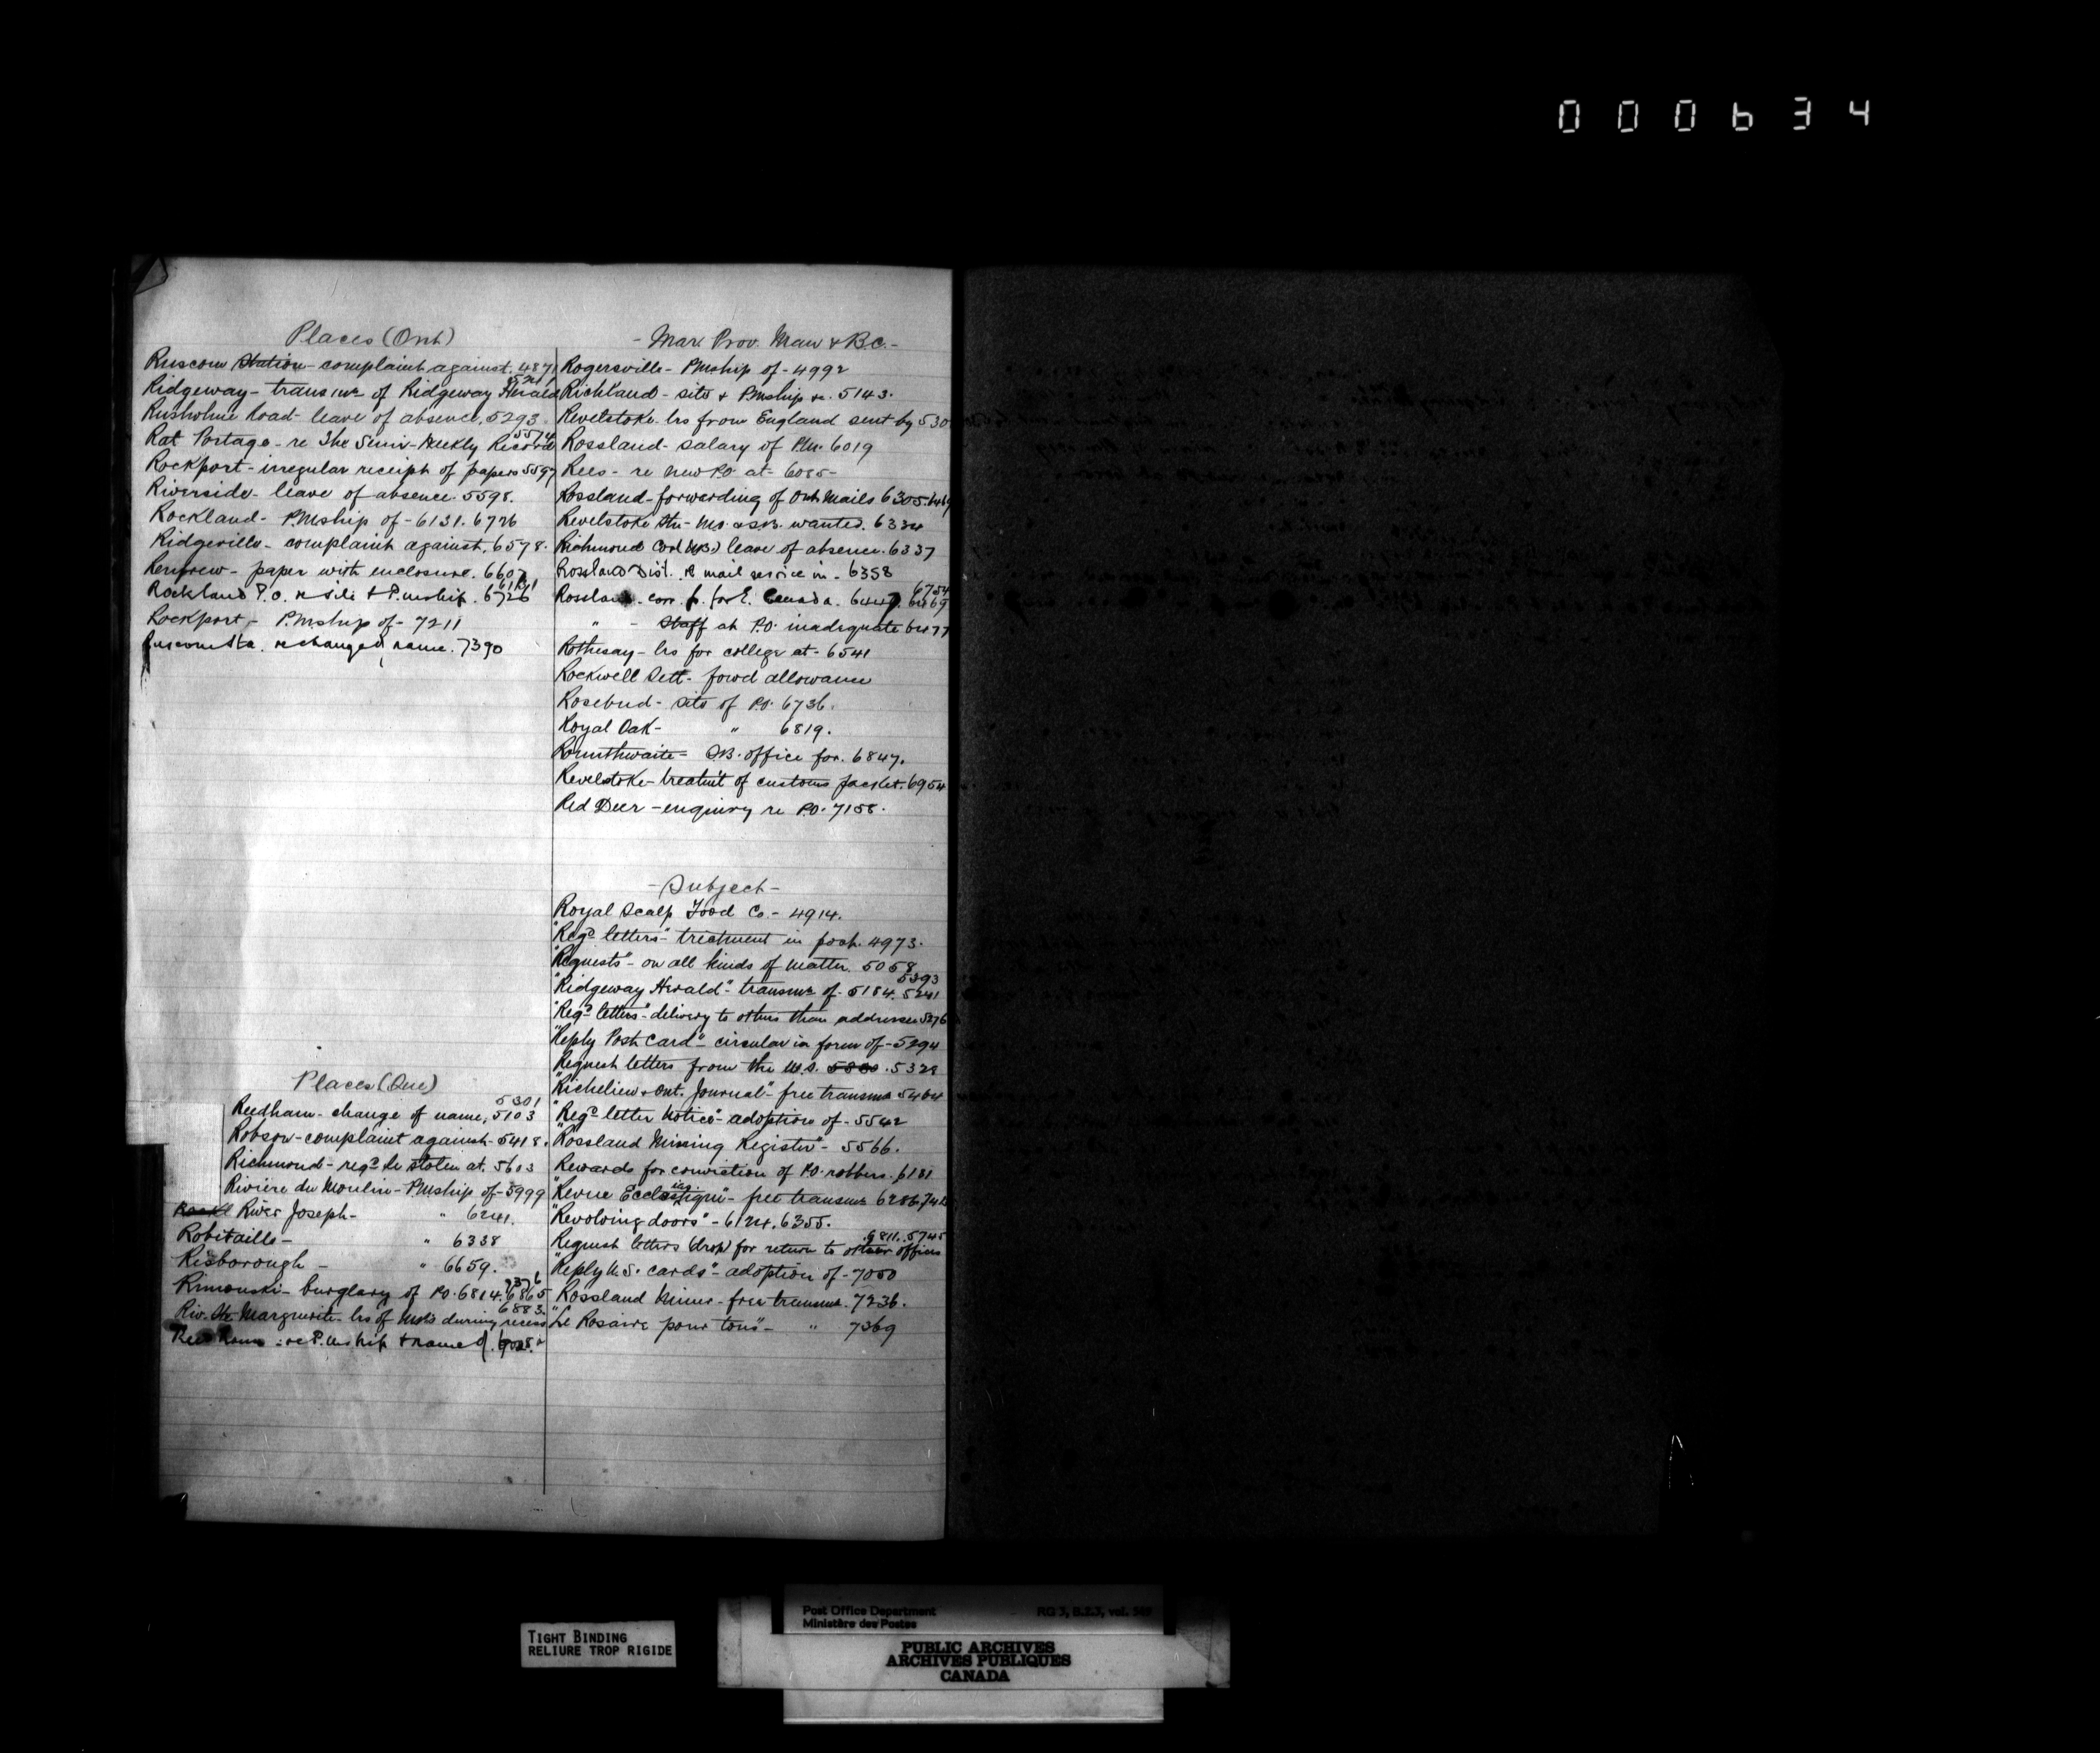 000634
Places (Ont)
Ruscom Station - complaint against. 487
Ridgeway - transmn of Ridgeway Herald
Rusholme Road - leave of absence, 5293
5574
Rat Portage - re The Semi-Weekly Record
Rockport - irregular receipt of papers 5597
Riverside - leave of absence. 5598.
Rockland - P.Mship of - 6131. 6726
Ridgeville - complaint against, 6578.
Renfrew - paper with enclosure. 6607
Rockland P.O. re site & P.mship. 6726
Rockport - P.Mship of - 7211
Ruscom Sta. re changed name. 7390
Places (Que)
5301
Reedham - change of name, 5103
Robson - complaint against - 5418.
Richmond - regd le stolen at. 5603
Riviere du Moulin - PMship of - 5999
River Joseph - " 6241.
Robitaille - " 6338
Risborough - " 6659.
7376
Rimouski - burglary of P.O. 6814. 6865
6883.
Riv. Marguerite - lrs of Mots during recess
re P.mship & name of.
- Mar. Prov. Man & B.C. -
Rogersville - PMship of - 4992
Richland - site & PMship re. 5143.
Revelstoke. lrs from England sent by 530
Rossland - salary of P.M. 6019
Rees - re new P.O. at - 6085 -
Rossland - forwarding of Ont Mails 6305. 646
Revelstoke Stn - M.O. & S.B. wanted. 6334
Richmond Cor (N.B.) leave of absence. 6337
Rossland Dist. re mail service in - 6358
6754
Rossland - corr. fr. for E. Canada. 6447. 6469
" - Staff at P.O. inadequate 6477
Rothesay - lrs for college at - 6541
Rockwell Sett - forwd allowance
Rosebud - site of P.O. 6736.
Royal Oak - " 6819.
Rounthwaite - S.B. office for. 6847.
Revelstoke - treatm't of customs packet. 6954
Red Deer - enquiry re P.O. 7158.
- Subject -
Royal Scalp Food Co. - 4914.
"Regd letters" - treatment in post. 4973.
"Requests" - on all kinds of matter. 5058
5393
"Ridgeway Herald" - transmn of - 5184. 5241
"Regd letters" - delivery to others than addressee 5276
"Reply Post Card" - circular in form of - 5294
"Request letters from the U.S. 5328
"Richelieu & Ont. Journal" - free transmn 5464
"Regd letter Notice" - adoption of - 5542
"Rossland Mining Register" - 5566.
Rewards for conviction of P.O. robbers. 6181
"Revue Ecclesiastique" - free transmn 6286.
"Revolving doors" - 6124. 6355.
6811. 5745
Request letters (drop) for return to other offices
"Reply U.S. cards" - adoption of - 7050
Rossland Miner - free transmn. 7236.
"Le Rosaire pour tous" - " 7369
TIGHT BINDING
RELIURE TROP RIGIDE
Post Office Department
Ministère des Postes
RG 3, vol.
PUBLIC ARCHIVES
ARCHIVES PUBLIQUES
CANADA